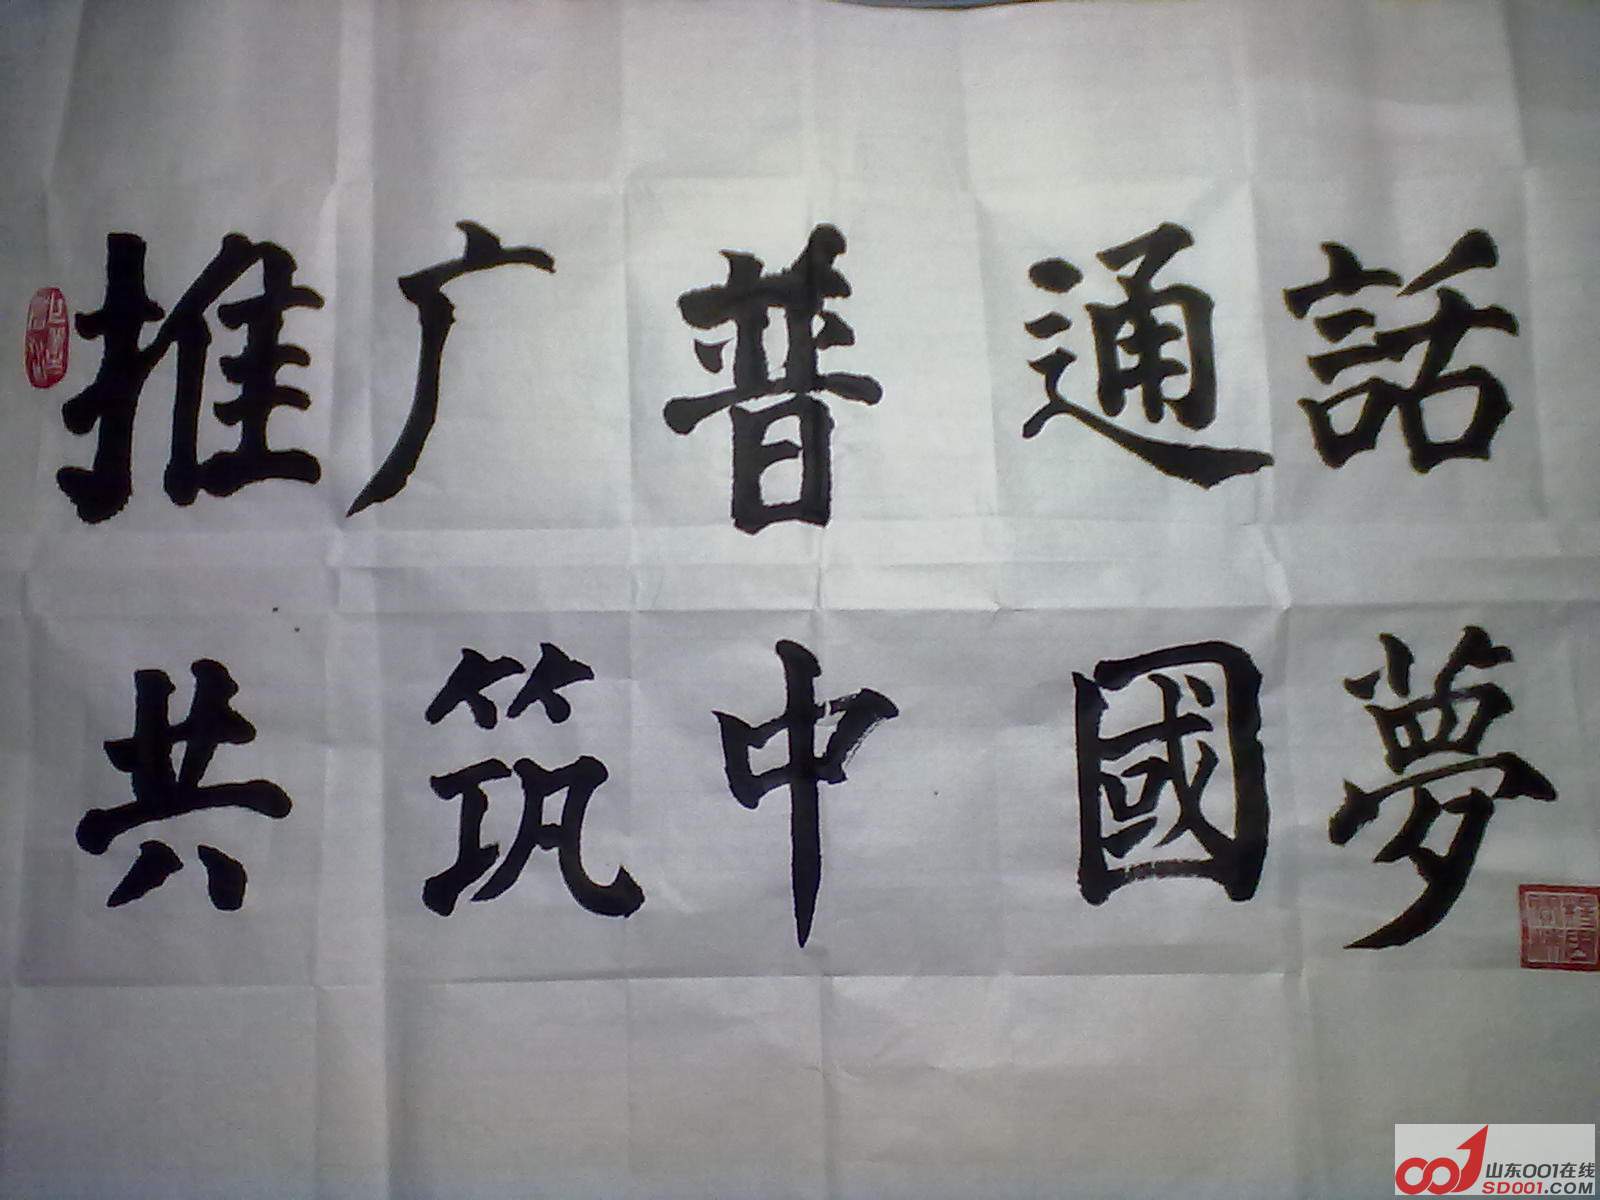 推广普通話
共筑中國夢
山东001在线
SD001.COM